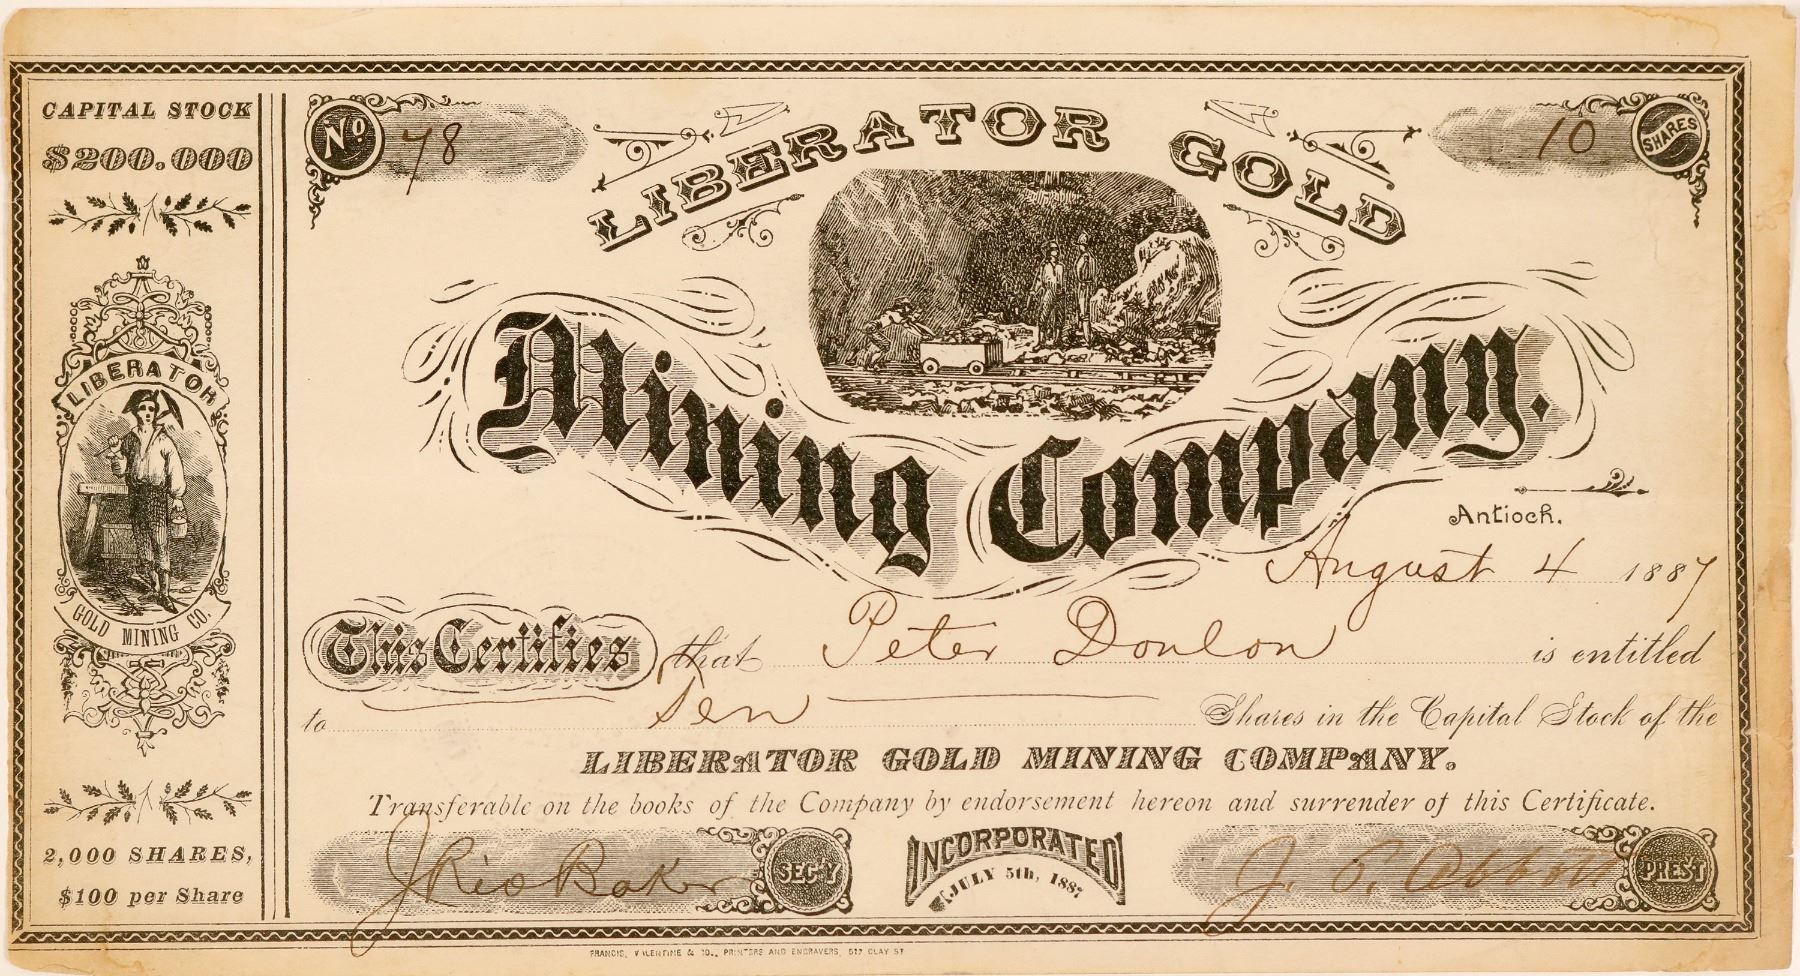 CAPITAL STOCK
$200.000
LIBERATOR
GOLD MINING CO.
2,000 SHARES,
$100 per Share
No 78
LIBERATOR GOLD
10 SHARES
Mining Company.
Antioch.
August 4 1887
This Certifies that Peter Donlon is entitled
to Ten Shares in the Capital Stock of the
LIBERATOR GOLD MINING COMPANY.
Transferable on the books of the Company by endorsement hereon and surrender of this Certificate.
J Rio Baker SEC'Y
INCORPORATED
JULY 5th, 1887
J. P. Abbott PRES'T
FRANCIS, VALENTINE & CO., PRINTERS AND ENGRAVERS, 517 CLAY ST